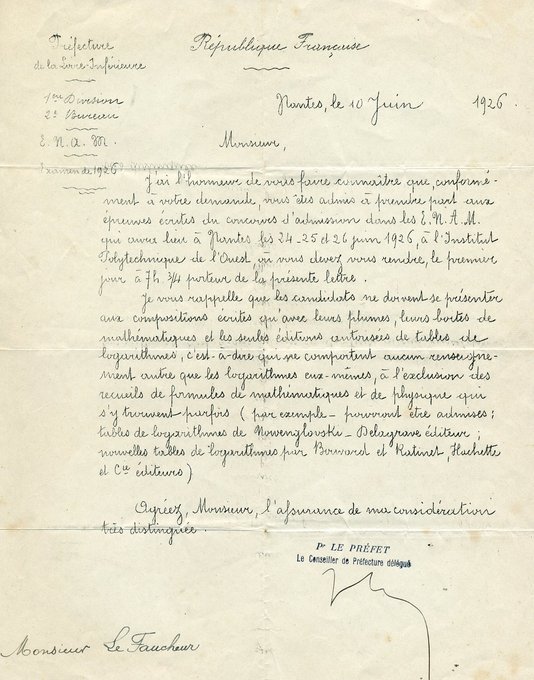 Préfecture
de la Loire-Inférieure
République Française
1ère Division
2e Bureau
Nantes, le 10 Juin 1926.
E. N. A. M.
Examen de 1926
Monsieur,
J'ai l'honneur de vous faire connaître que, conformé-
ment à votre demande, vous êtes admis à prendre part aux
épreuves écrites du concours d'admission dans les E.N.A.M.
qui aura lieu à Nantes les 24-25 et 26 juin 1926, à l'Institut
Polytechnique de l'Ouest, où vous devez vous rendre, le premier
jour à 7h. 3/4 porteur de la présente lettre.
Je vous rappelle que les candidats ne doivent se présenter
aux compositions écrites qu'avec leurs plumes, leurs boîtes de
mathématiques et les seules éditions autorisées de tables de
logarithmes, c'est-à-dire qui ne comportent aucun renseigne-
ment autre que les logarithmes eux-mêmes, à l'exclusion des
recueils de formules de mathématiques et de physique qui
s'y trouvent parfois (par exemple - pourront être admises :
tables de logarithmes de - Delagrave éditeur ;
nouvelles tables de logarithmes par et Ratinet, Hachette
et Cie éditeurs)
Agréez, Monsieur, l'assurance de ma considération
très distinguée.
Pr LE PRÉFET
Le Conseiller de Préfecture délégué
Monsieur Le Faucheur